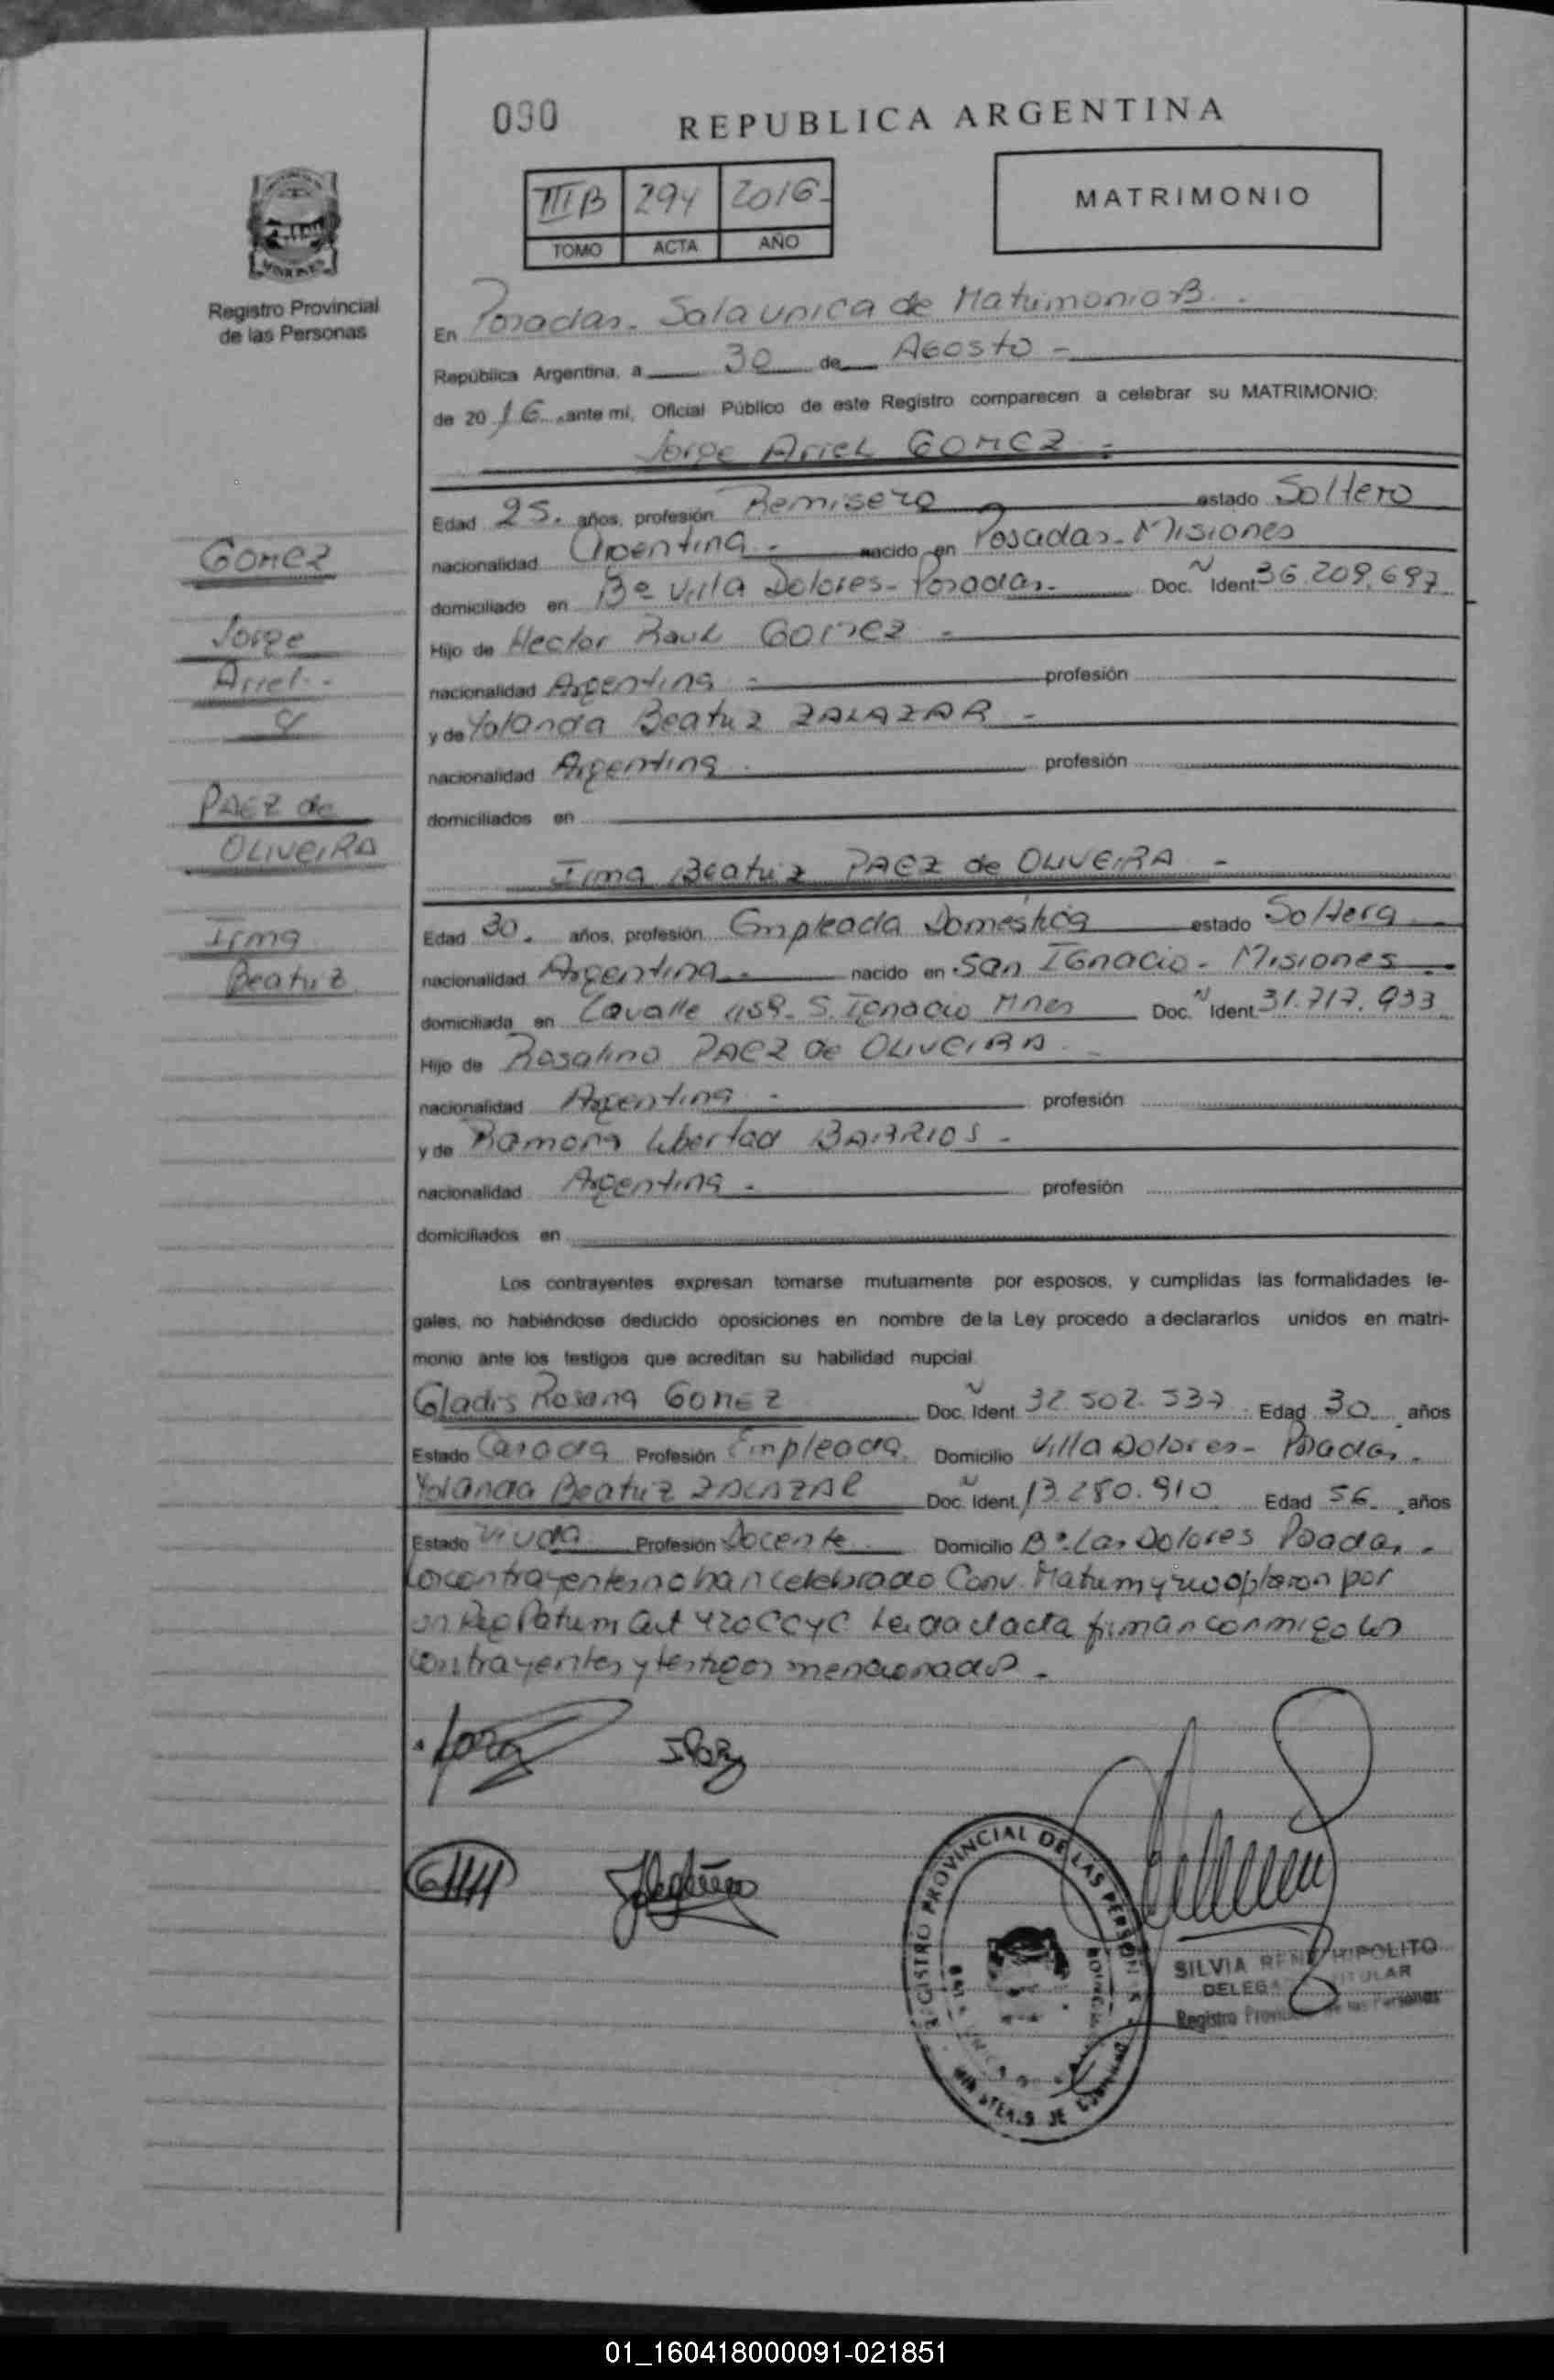 090
REPUBLICA ARGENTINA
III B 294 2016-
TOMO ACTA AÑO
MATRIMONIO
MISIONES
Registro Provincial
de las Personas
En Posadas. Sala unica de Matrimonios B.
República Argentina, a 30 de Agosto -
de 20 16 ante mi, Oficial Público de este Registro comparecen a celebrar su MATRIMONIO:
Jorge Ariel GOMEZ -
Edad 25. años, profesión Remisero estado Soltero
nacionalidad Argentina - nacido en Posadas - Misiones
domiciliado en Bº Villa Dolores - Posadas. Doc. Ident. 36.209.697
Hijo de Hector Raul GOMEZ -
nacionalidad Argentina - profesión
y de Yolanda Beatriz ZALAZAR -
nacionalidad Argentina - profesión
domiciliados en
Irma Beatriz PAEZ de OLIVEIRA -
Edad 30. años, profesión Empleada Doméstica estado Soltera
nacionalidad Argentina - nacido en San Ignacio - Misiones
domiciliada en Lavalle S. Ignacio Mnes Doc. Ident. 31.717.933
Hijo de Rosalino PAEZ de OLIVEIRA -
nacionalidad Argentina - profesión
y de Ramona Libertad BARRIOS -
nacionalidad Argentina - profesión
domiciliados en
Los contrayentes expresan tomarse mutuamente por esposos, y cumplidas las formalidades le-
gales, no habiéndose deducido oposiciones en nombre de la Ley procedo a declararlos unidos en matri-
monio ante los testigos que acreditan su habilidad nupcial
Gladis Rosana GOMEZ Doc. Ident. 32.502.537 Edad 30 años
Estado Casada Profesión Empleada Domicilio Villa Dolores - Posadas.
Yolanda Beatriz ZALAZAR Doc. Ident. 13.280.910 Edad 56 años
Estado Viuda Profesión Docente Domicilio Bº Las Dolores Posadas.
Los contrayentes no han celebrado Conv. Matrim y no optaron por
un Reg Patrim Art 420 CCyC Leida el acta firman conmigo los
contrayentes y testigos mencionados -
GOMEZ
Jorge
Ariel -
y
PAEZ de
OLIVEIRA
Irma
Beatriz
REGISTRO PROVINCIAL DE LAS PERSONAS
SILVIA HIPOLITO
DELEGADA TITULAR
Registro Provincial de las Personas
01_160418000091-021851